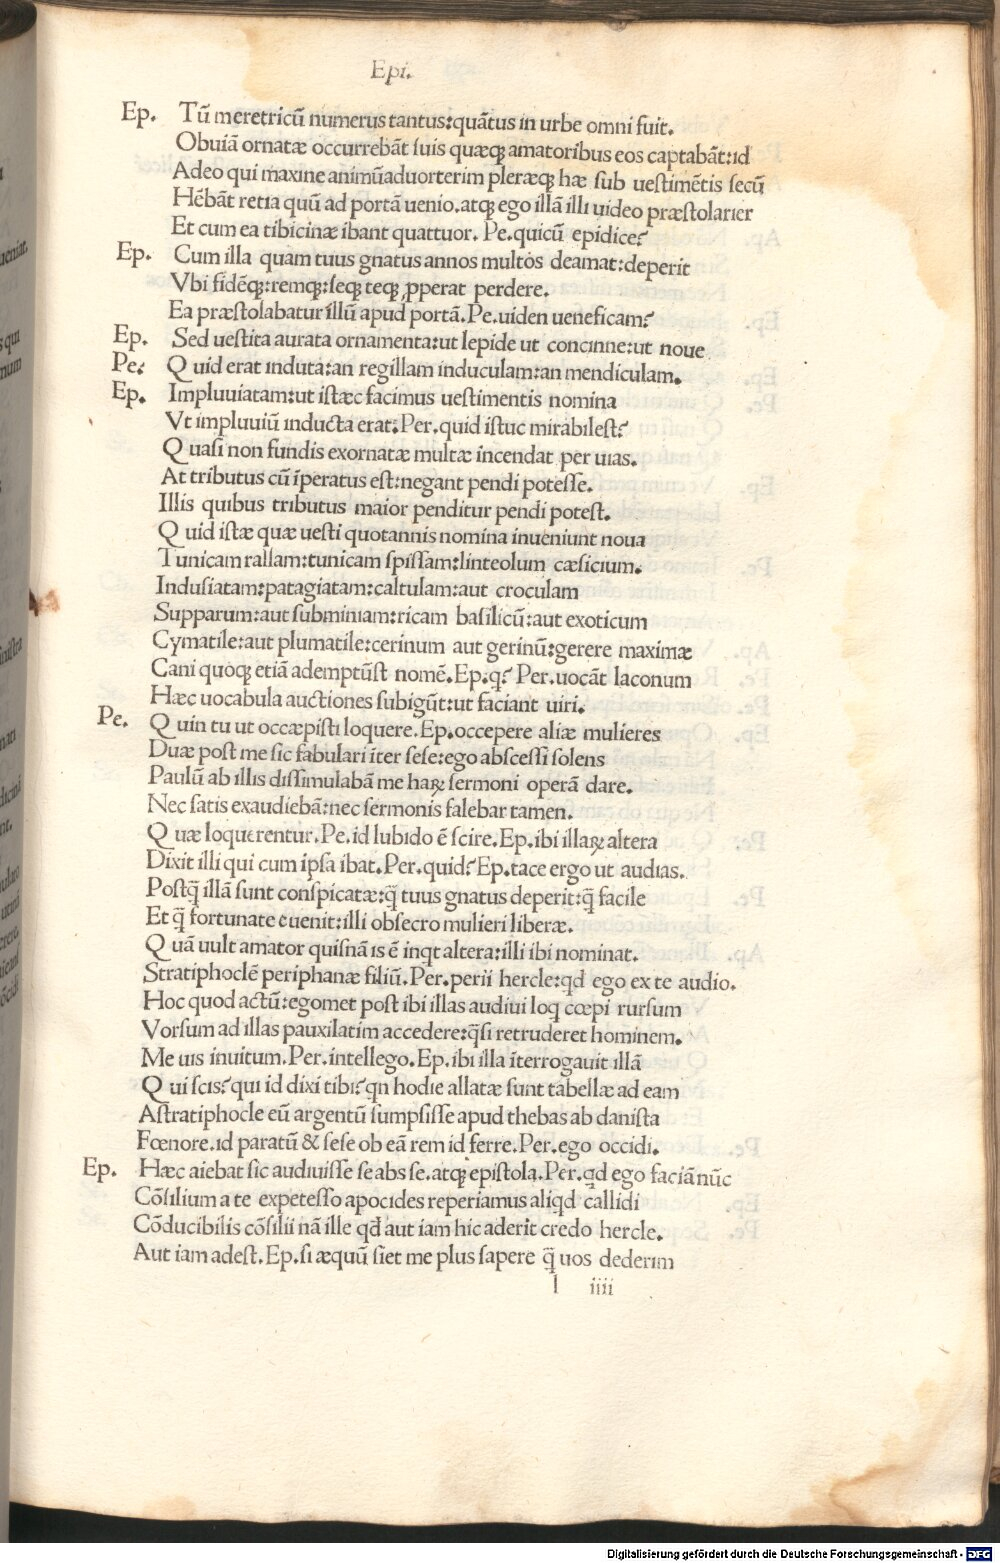 Epi.
Ep. Tū meretricū numerus tantus:quātus in urbe omni fuit.
Obuiā ornatæ occurrebāt suis quæqꝫ amatoribus eos captabāt:id
Adeo qui maxine animūaduorterim pleræqꝫ hæ sub uestimētis secū
Hēbāt retia quū ad portā uenio.atqꝫ ego illā illi uideo præstolarier
Et cum ea tibicinæ ibant quattuor. Pe.quicū epidice?
Ep. Cum illa quam tuus gnatus annos multos deamat:deperit
Vbi fidēqꝫ:remqꝫ:seqꝫ teqꝫ ꝓperat perdere.
Ea præstolabatur illū apud portā.Pe.uiden ueneficam?
Ep. Sed uestita aurata ornamenta:ut lepide ut concinne:ut noue
Pe: Quid erat induta:an regillam induculam:an mendiculam.
Ep. Impluuiatam:ut istæc facimus uestimentis nomina
Vt impluuiū inducta erat:Per.quid istuc mirabilest?
Quasi non fundis exornatæ multæ incendat per uias.
At tributus cū īperatus est:negant pendi potesse.
Illis quibus tributus maior penditur pendi potest.
Quid istæ quæ uesti quotannis nomina inueniunt noua
Tunicam rallam:tunicam spissam:linteolum cæsicium.
Indusiatam:patagiatam:caltulam:aut croculam
Supparum:aut subminiam:ricam basilicū:aut exoticum
Cymatile:aut plumatile:cerinum aut gerinū:gerere maximæ
Cani quoqꝫ etiā ademptūst nomē.Ep.q? Per.uocāt laconum
Hæc uocabula auctiones subigūt:ut faciant uiri.
Pe. Quin tu ut occæpisti loquere.Ep.occepere aliæ mulieres
Duæ post me sic fabulari īter sese:ego abscessi solens
Paulū ab illis dissimulabā me haꝝ sermoni operā dare.
Nec satis exaudiebā:nec sermonis falebar tamen.
Quæ loquerentur.Pe.id lubido ē scire.Ep.ibi illaꝝ altera
Dixit illi qui cum ipsa ibat.Per.quid?Ep.tace ergo ut audias.
Postq̄ illā sunt conspicatæ:q̄ tuus gnatus deperit:q̄ facile
Et q̄ fortunate euenit:illi obsecro mulieri liberæ.
Quā uult amator quisnā is ē inqt altera:illi ibi nominat.
Stratiphoclē periphanæ filiū.Per.perii hercle:qd ego ex te audio.
Hoc quod actū:egomet post ibi illas audiui loq cœpi rursum
Vorsum ad illas pauxilatim accedere:q̄si retruderet hominem.
Me uis inuitum.Per.intellego.Ep.ibi illa īterrogauit illā
Qui scis?qui id dixi tibi?qn hodie allatæ sunt tabellæ ad eam
Astratiphocle eū argentū sumpsisse apud thebas ab danista
Fœnore.id paratū & sese ob eā rem id ferre.Per.ego occidi.
Ep. Hæc aiebat sic audiuisse se abs se.atqꝫ epistola.Per.qd ego faciā nūc
Cōsilium a te expetesso apocides reperiamus aliqd callidi
Cōducibilis cōsilii nā ille qd aut iam hic aderit credo hercle.
Aut iam adest.Ep.si æquū siet me plus sapere q̄ uos dederim
l iiii
Digitalisierung gefördert durch die Deutsche Forschungsgemeinschaft - DFG